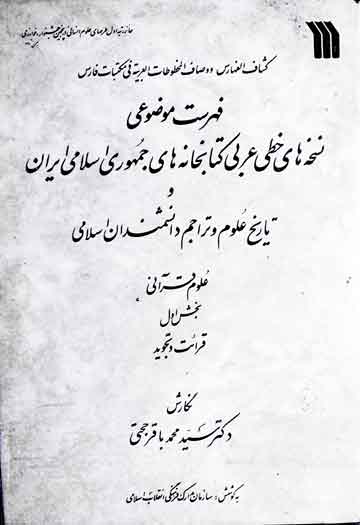 جایزه اول طرحهای علوم انسانی از پنجمین جشنواره خوارزمی
کشاف الفهارس و وصاف المخطوطات العربیة فی مکتبات فارس
فهرست موضوعی
نسخه های خطی عربی کتابخانه های جمهوری اسلامی ایران
و
تاریخ علوم و تراجم دانشمندان اسلامی
علوم قرآنی
بخش اول
قرائت و تجوید
نگارش
دکتر سید محمد باقر حجتی
به کوشش: سازمان مدارک فرهنگی انقلاب اسلامی